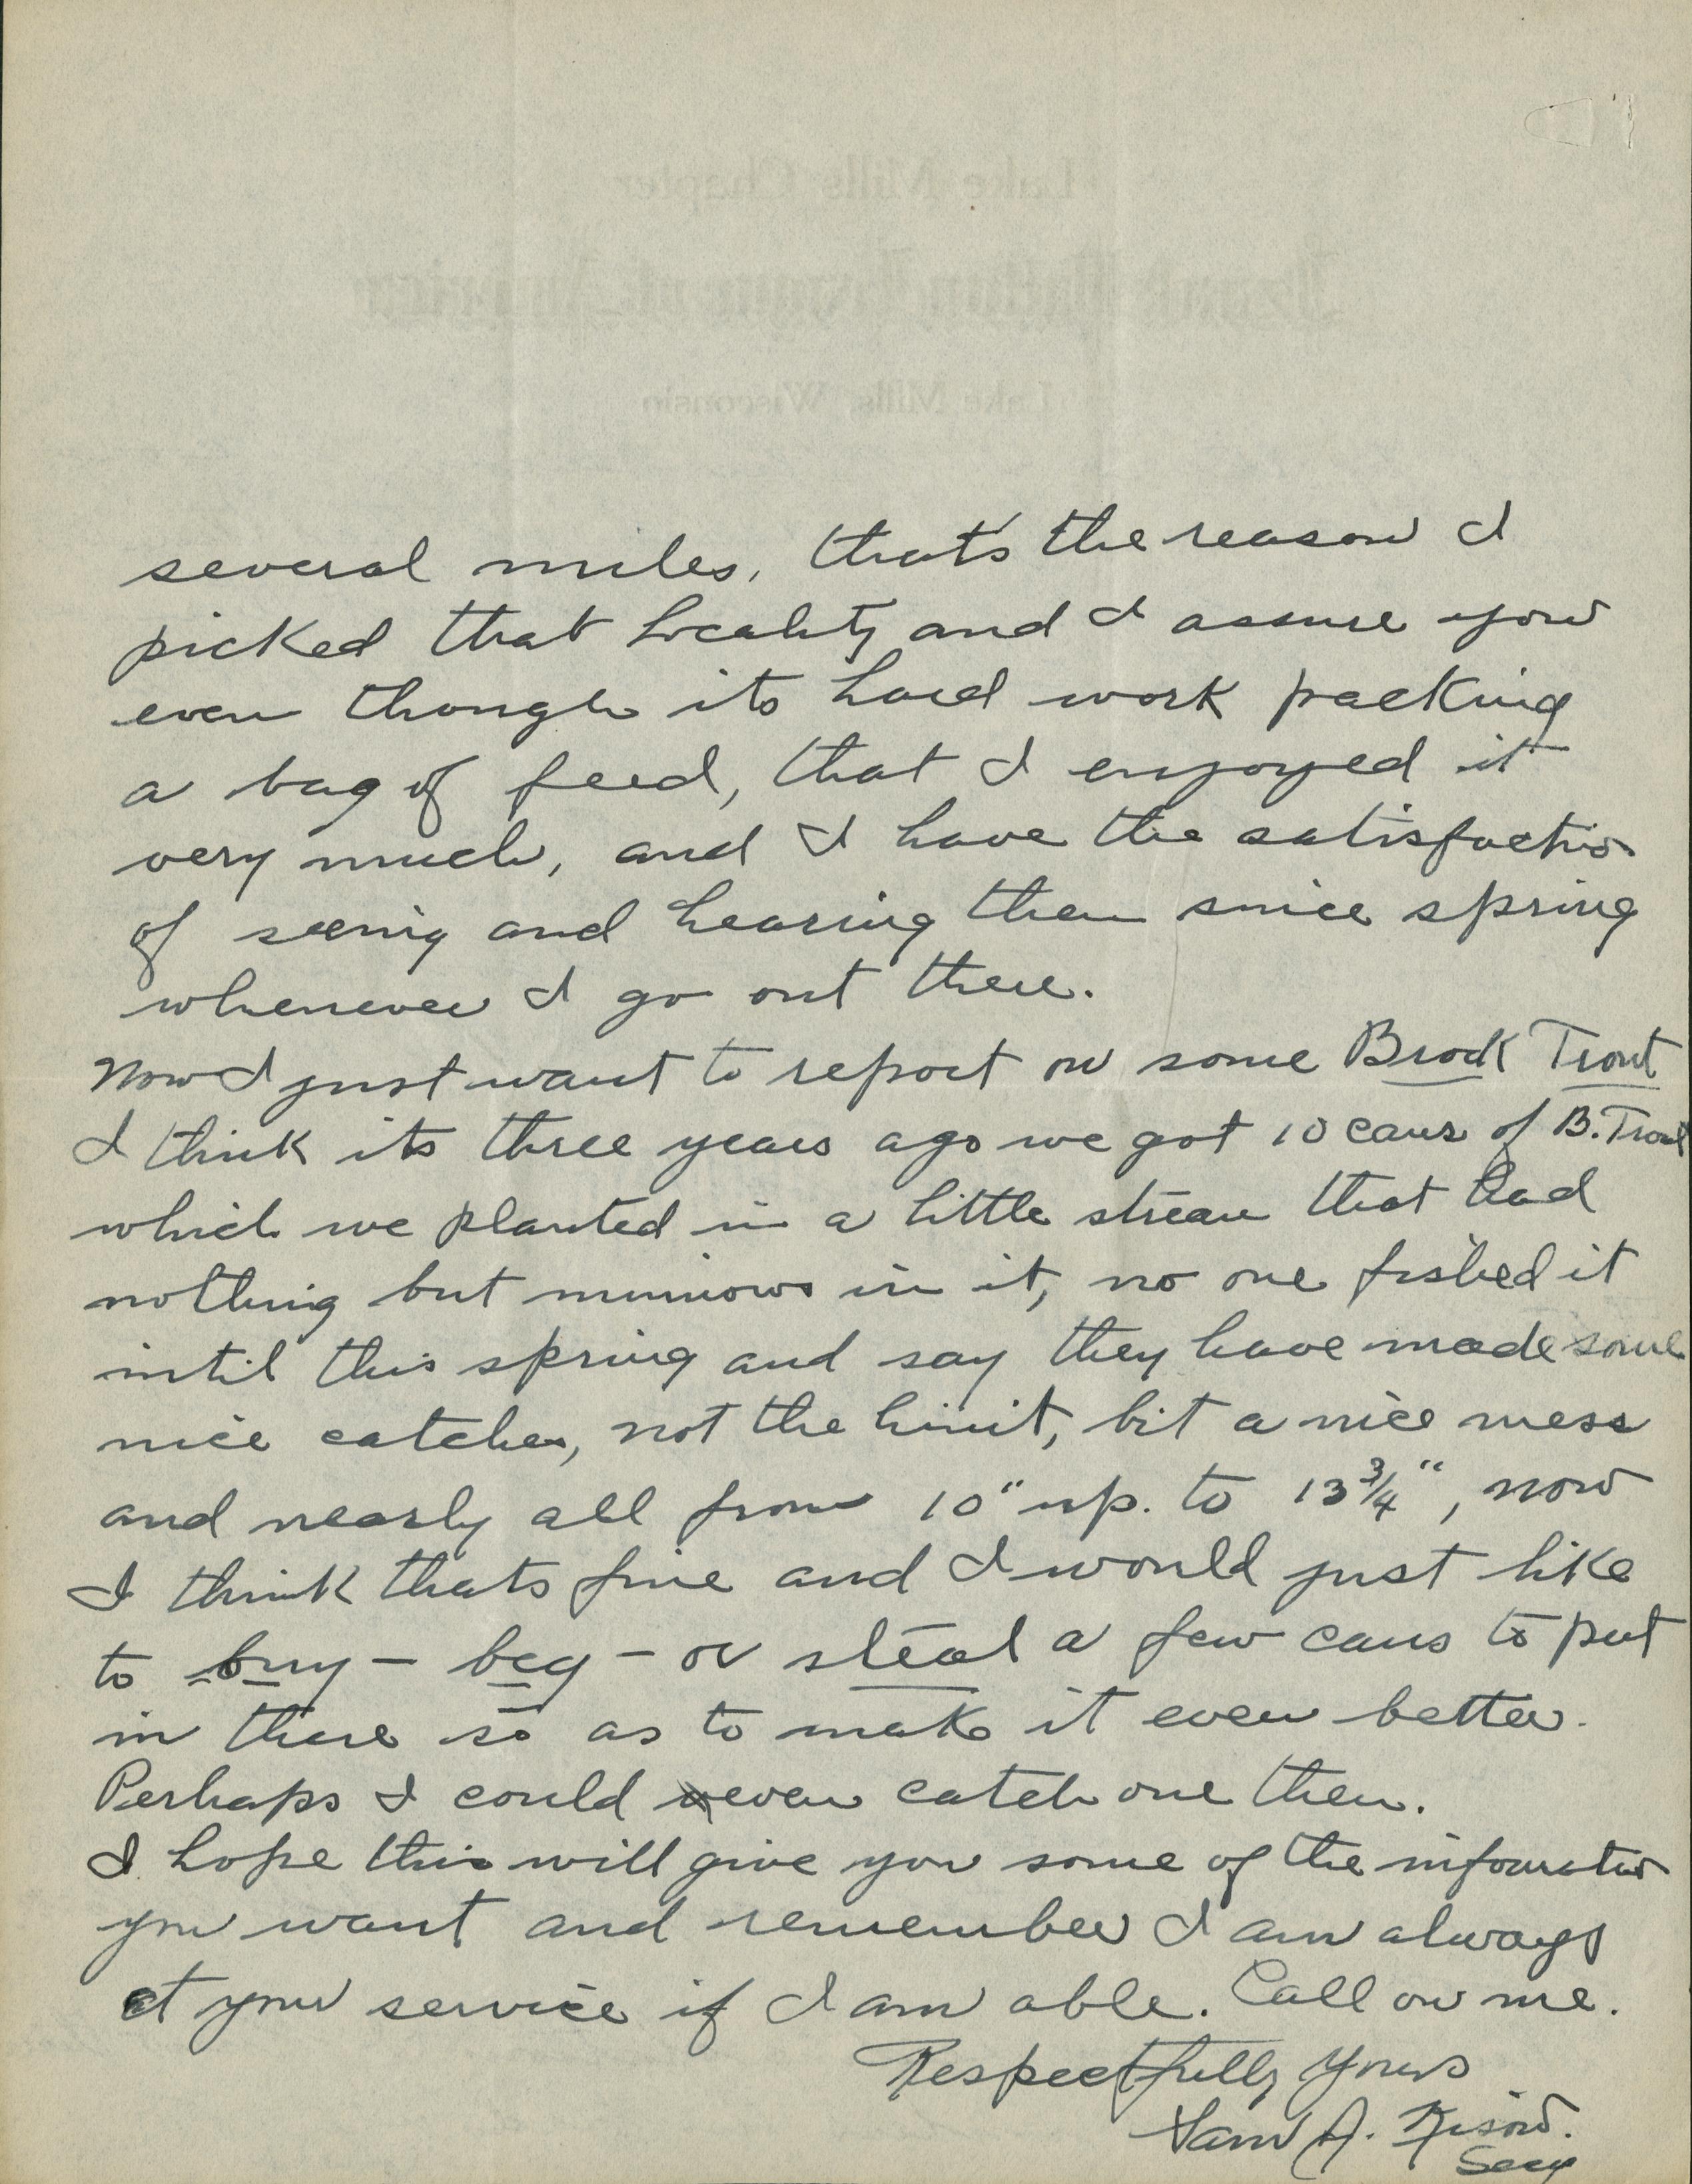 Lake Mills Chapter
Izaak Walton League of America
Lake Mills, Wisconsin
several miles, that's the reason I
picked that locality and I assure you
even though its hard work packing
a bag of feed, that I enjoyed it
very much, and I have the satisfaction
of seeing and hearing them since spring
whenever I go out there.
Now I just want to report on some Brook Trout
I think its three years ago we got 10 cans of B. Trout
which we planted in a little stream that had
nothing but minnows in it, no one fished it
until this spring and say they have made some
nice catches, not the limit, but a nice mess
and nearly all from 10" up. to 13 3/4", now
I think thats fine and I would just like
to buy - beg - or steal a few cans to put
in there so as to make it even better.
Perhaps I could even catch one then.
I hope this will give you some of the information
you want and remember I am always
at your service if I am able. Call on me.
Respectfully Yours
Sam A.
Secy